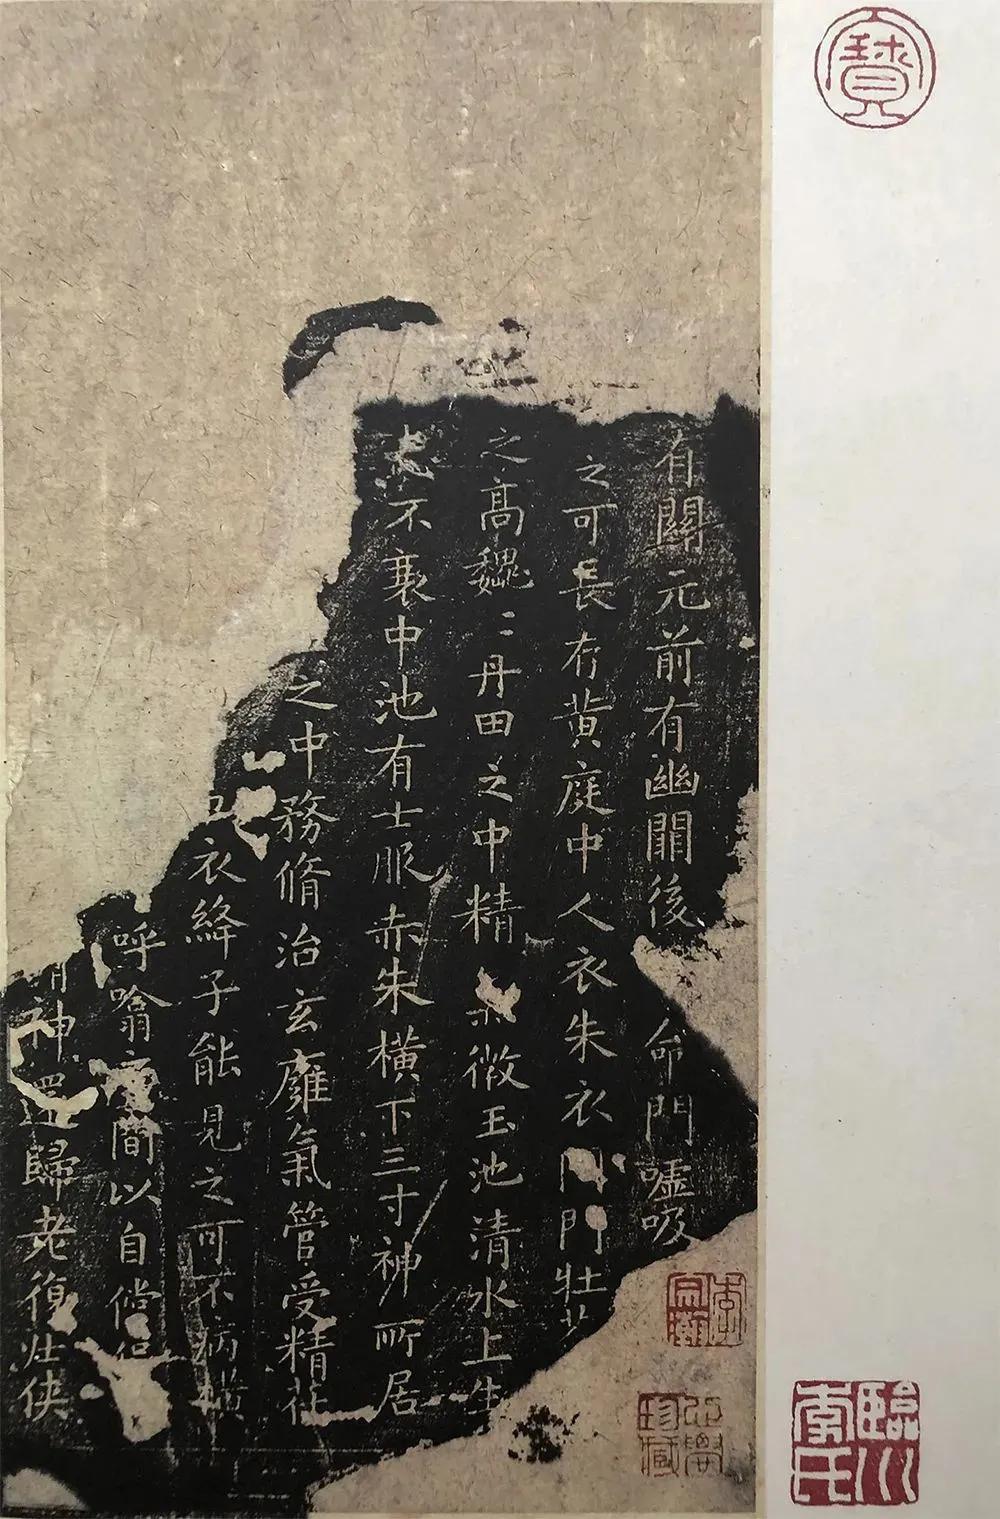 寶
有關元前有幽闕後 命門噓吸
之可長存黃庭中人衣朱衣 門牡
之高巍〻丹田之中精 微玉池清水上生
不衰中池有士服赤朱橫下三寸神所居
之中務脩治玄廱氣管受精
衣絳子能見之可不病橫
呼噏 間以自
神還歸老復壯俠
珍藏
臨川李氏